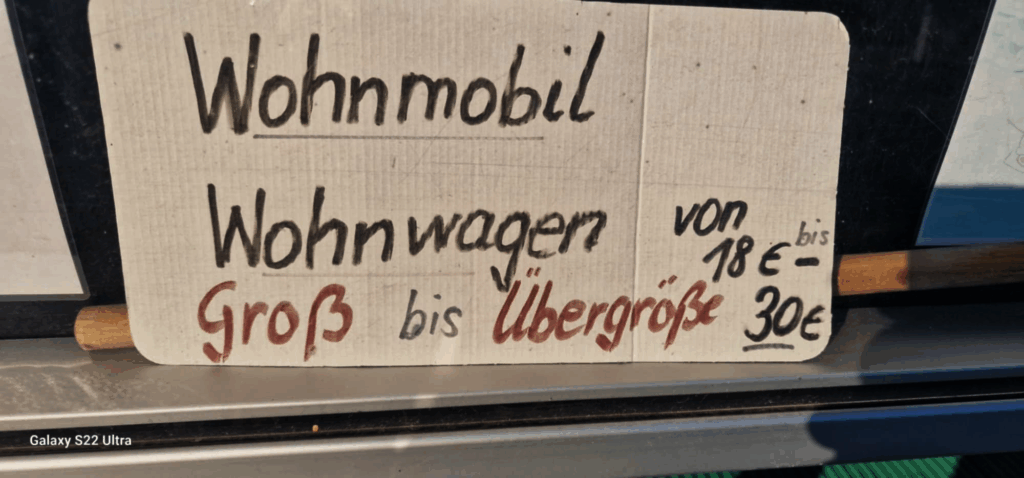 Wohnmobil
Wohnwagen von
18 € - bis
Groß bis Übergröße 30€
Galaxy S22 Ultra